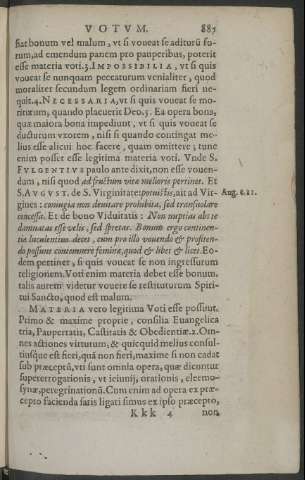 VOTVM. 885
fiat bonum vel malum, vt si voueat se aditurũ forum,
ad emendum panem pro pauperibus, poterit
esse materia voti. 3. IMPOSSIBILIA, vt si quis
voueat se nunquam peccaturum venialiter, quod
moraliter secundum legem ordinariam fieri nequit.
4. NECESSARIA, vt si quis voueat se moriturum,
quando placuerit Deo. 5. Ea opera bona,
quæ maiora bona impediunt, vt si quis voueat se
ducturum vxorem, nisi si quando contingat melius
esse alicui hoc facere, quam omittere; tunc
enim posset esse legitima materia voti. Vnde S.
FVLGENTIVS paulo ante dixit, non esse vouendum,
nisi quod ad fructum vitæ melioris pertinet. Et
S. AVGVST. de S. Virginitate: ait ad Virgines:
coniugia non deuitare prohibita, sed transuolare
concessa. Et de bono Viduitatis: Non nuptias abs te
damnatas esse velis, sed spretas. Bonum ergo continentiæ
luculentius decet, cum pro illo vouendo & profitendo
possunt contemnere feminæ, quod & libet & licet. Eodem
pertinet, si quis voueat se non ingressurum
religionem. Voti enim materia debet esse bonum.
talis autem videtur vouere se restiturum Spiritui
Sancto, quod est malum.
MATERIA vero legitima Voti esse possunt.
Primo & maxime proprie, consilia Euangelica
tria, Paupertatis, Castitatis & Obedientiæ. 2. Omnes
actiones virtutum, & quicquid melius consultiusque
est fieri, quã non fieri, maxime si non cadat
sub præceptũ, vt sunt omnia opera, quæ dicuntur
supererrogationis, vt ieiunij, orationis, eleemosynæ,
peregrinationũ. Cum enim ad opera ex præcepto
facienda satis ligati simus ex ipso præcepto,
Kkk 4 non
Aug. c. 21.